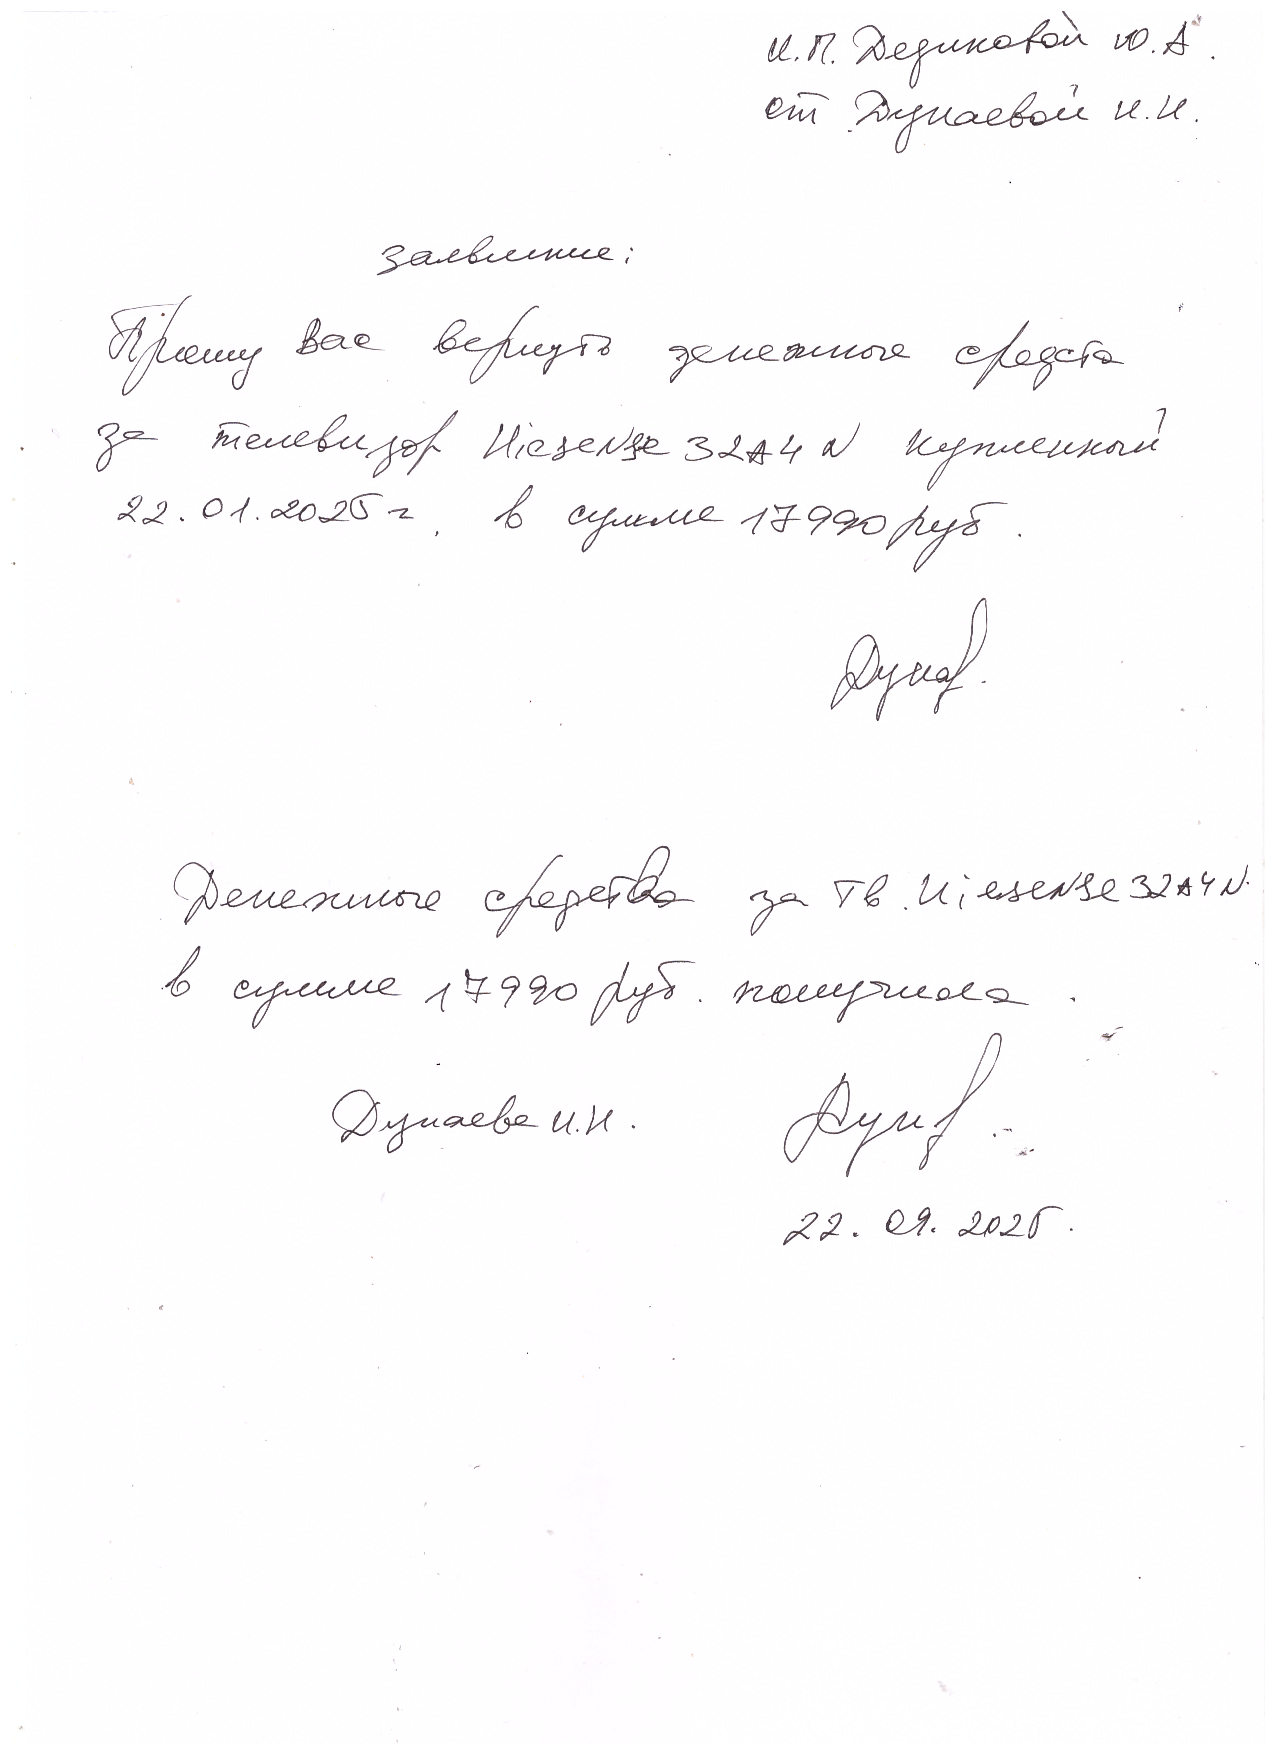 И.П. Дедиковой Ю.А.
от Дунаевой И.И.
заявление:
Прошу Вас вернуть денежные средста
за телевизор Hisense 32A4N купленный
22.01.2025 г. в сумме 17990 руб.
Дунаев.
Денежные средства за ТВ. Hisense 32A4N.
в сумме 17990 руб. получила.
Дунаева И.И.
22.09.2025.